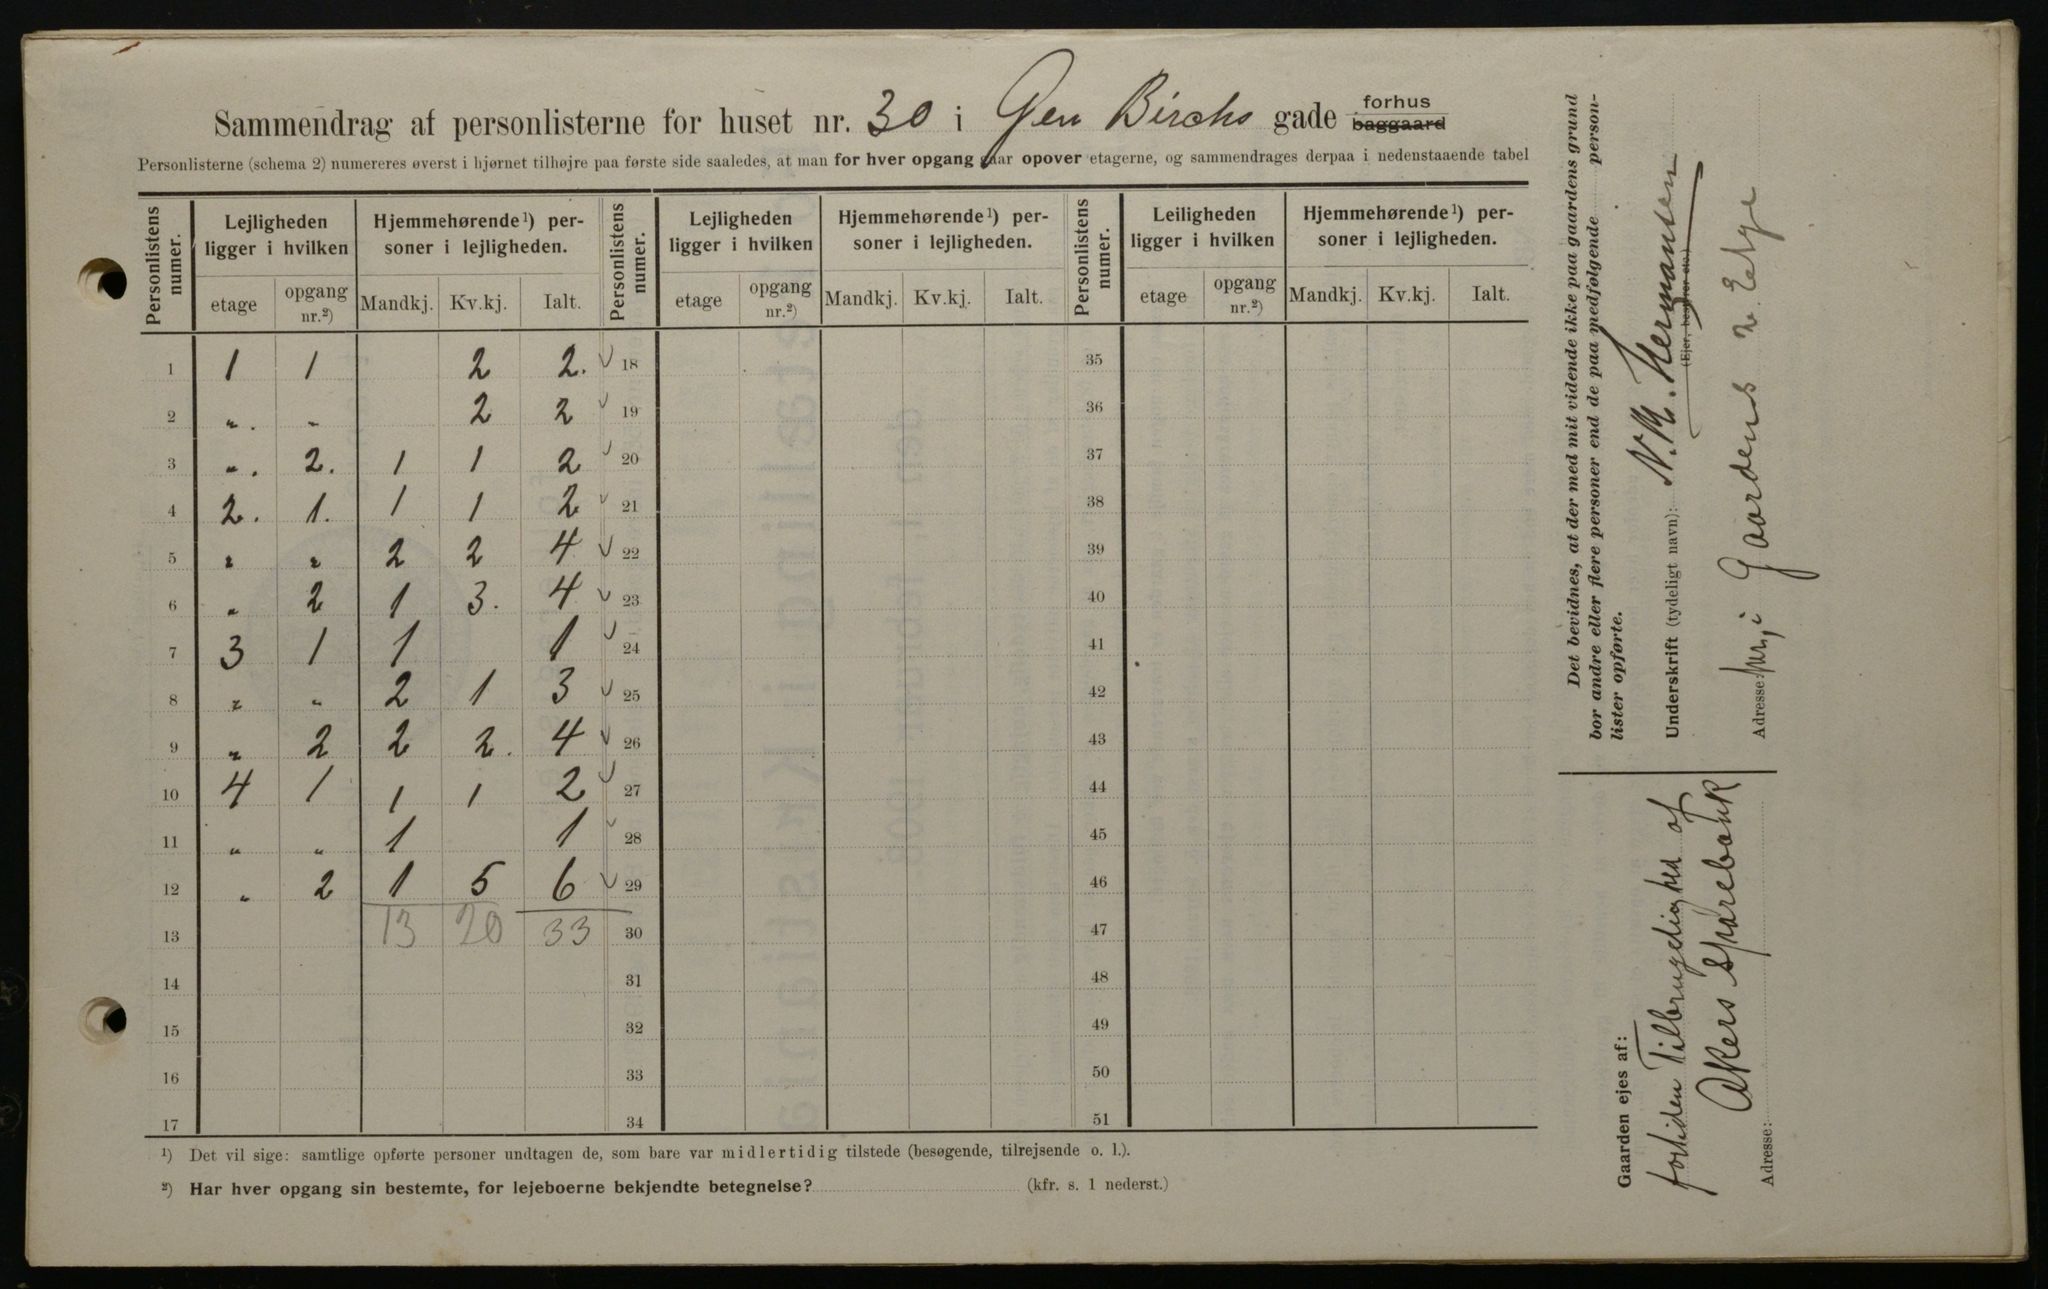 Sammendrag af personlisterne for huset nr. 30 i Gen Birchs gade forhus baggaard
Personlisterne (schema 2) numereres øverst i hjørnet tilhøjre paa første side saaledes, at man for hver opgang gaar opover etagerne, og sammendrages derpaa i nedenstaaende tabel
Personlistens numer. Lejligheden ligger i hvilken Hjemmehørende ¹) personer i lejligheden. Personlistens numer. Lejligheden ligger i hvilken Hjemmehørende ¹) personer i lejligheden. Personlistens numer. Leiligheden ligger i hvilken Hjemmehørende ¹) personer i lejligheden.
etage opgang nr.²) Mandkj. Kv.kj. Ialt. etage opgang nr.²) Mandkj. Kv.kj. Ialt. etage opgang nr.²) Mandkj. Kv.kj. Ialt.
1 1 1 2 2. 18 35
2 „. „ 2 2 19 36
3 „. 2. 1 1 2 20 37
4 2. 1. 1 1 2 21 38
5 „ „ 2 2 4 22 39
6 „ 2 1 3. 4 23 40
7 3 1 1 1 24 41
8 „ „ 2 1 3 25 42
9 „ 2 2 2. 4 26 43
10 4 1 1 1 2 27 44
11 „ „ 1 1 28 45
12 „ 2 1 5 6 29 46
13 13 20 33 30 47
14 31 48
15 32 49
16 33 50
17 34 51
¹) Det vil sige: samtlige opførte personer undtagen de, som bare var midlertidig tilstede (besøgende, tilrejsende o. l.).
²) Har hver opgang sin bestemte, for lejeboerne bekjendte betegnelse? (kfr. s. 1 nederst.)
Det bevidnes, at der med mit vidende ikke paa gaardens grund
bor andre eller flere personer end de paa medfølgende person-
lister opførte.
Underskrift (tydeligt navn): N. M. Hermansen
(Ejer, bestyrer etc.)
Adresse: Gaardens 2. Etage
Gaarden ejes af:
fortiden Tilbrugelighed af
Akers Sparebank
Adresse: